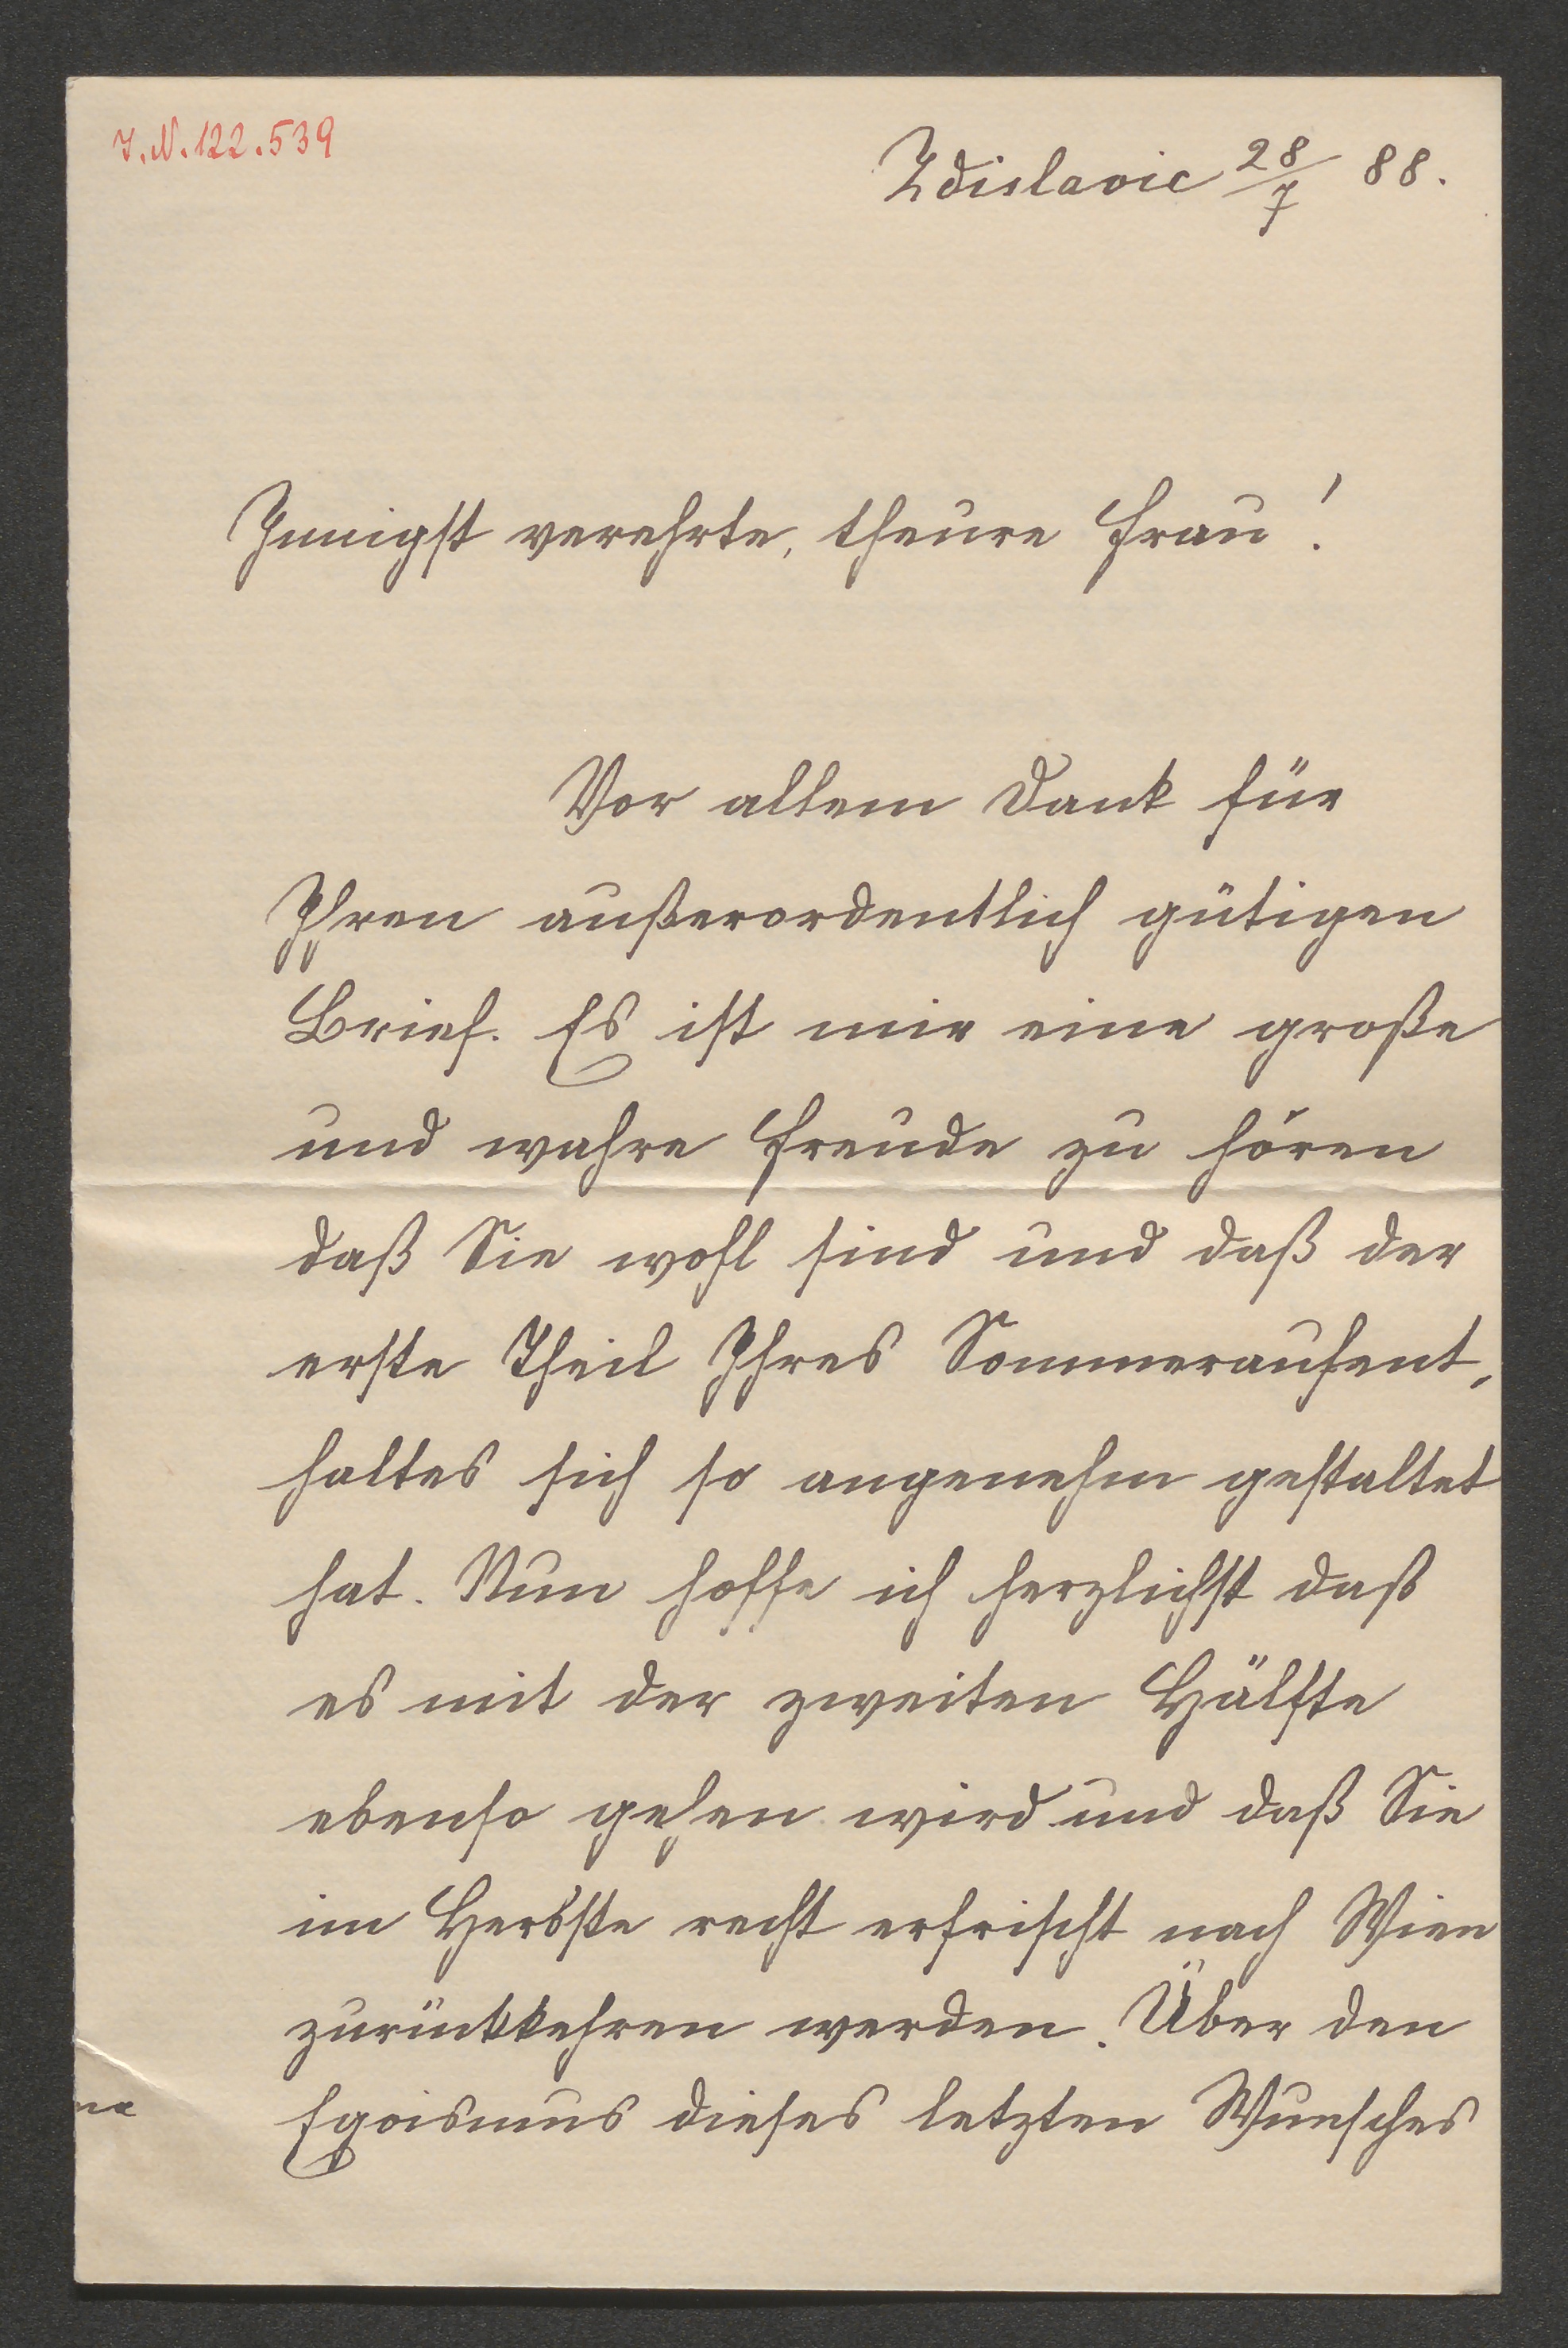 I.N. 122.539
Zdislavic 28/7 88.
Innigst verehrte, theure Frau!
Vor allem Dank für
Ihren außerordentlich gütigen
Brief. Es ist mir eine große
und wahre Freude zu hören
daß Sie wohl sind und daß der
erste Theil Ihres Sommeraufent,
haltes sich so angenehm gestaltet
hat. Nun hoffe ich herzlichst daß
es mit der zweiten Hälfte
ebenso gehen wird und daß Sie
im Herbste recht erfrischt nach Wien
zurückkehren werden. Über den
Egoismus dieses letzten Wunsches